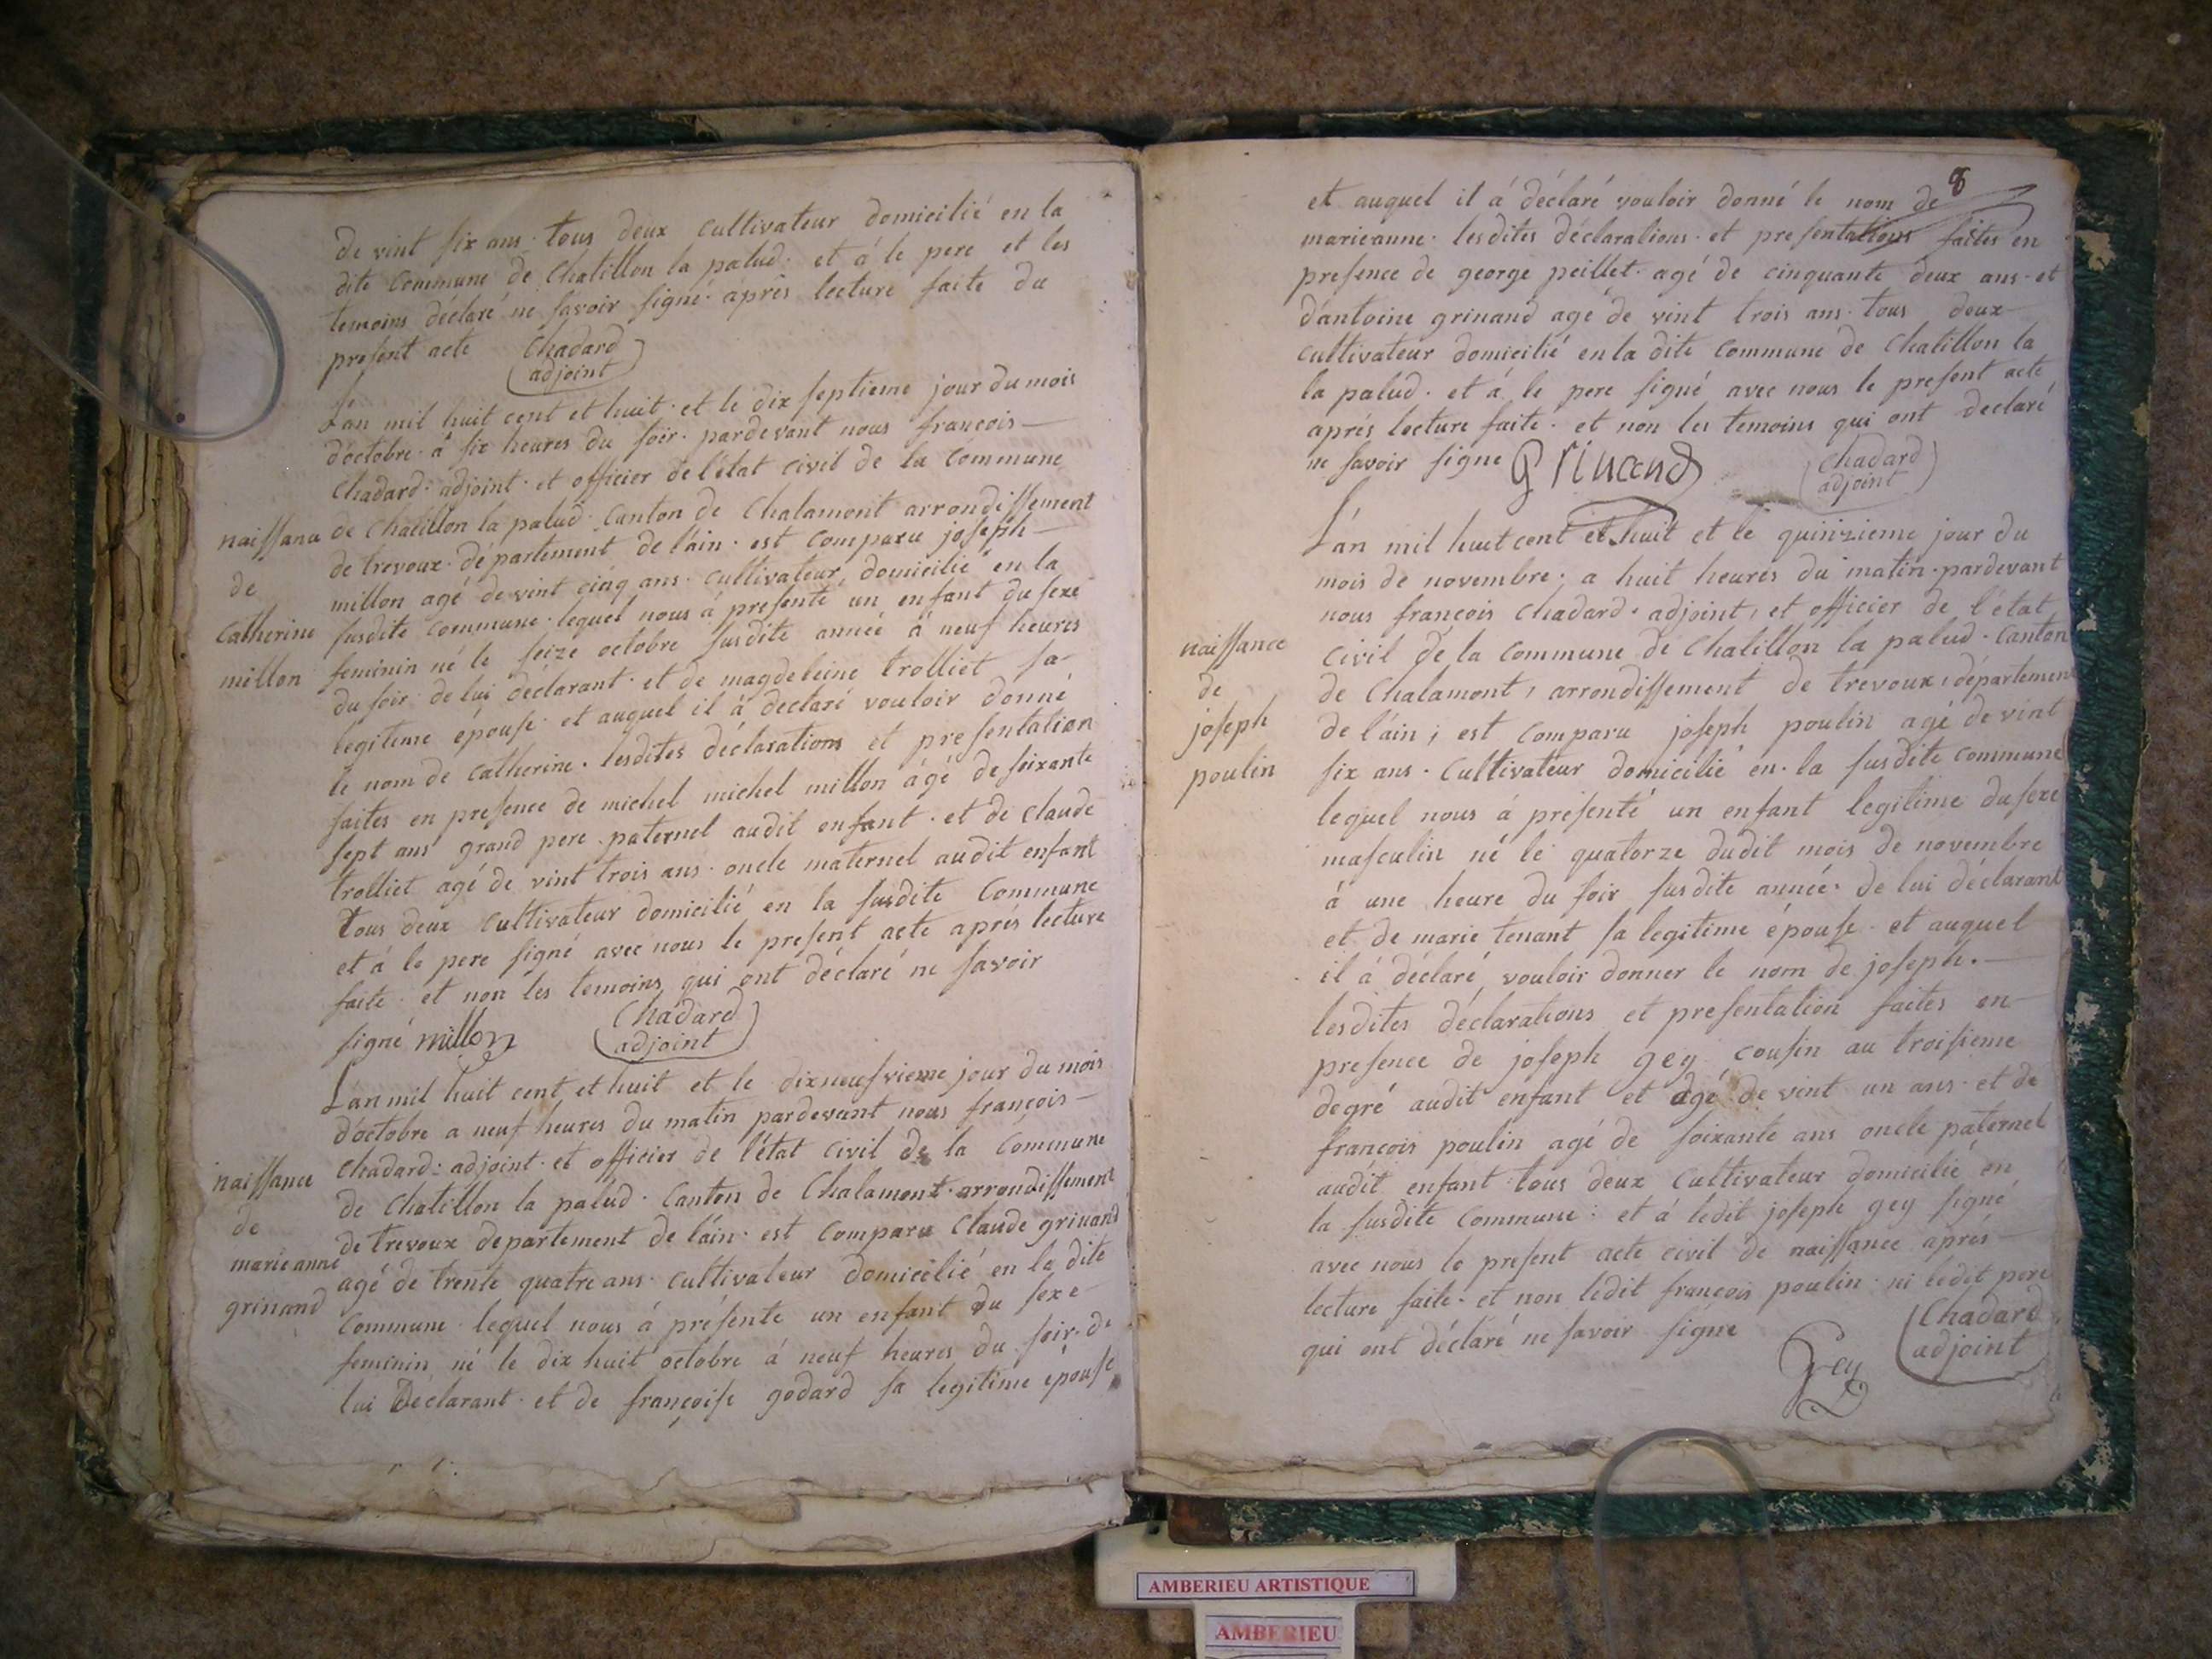 de vint six ans. tous deux cultivateur domicilié en la
dite commune de Chatillon la palud. et à le pere et les
temoins déclaré ne savoir signé. aprés lecture faite du
present acte Chadard
adjoint
L'an mil huit cent et huit. et le dix septieme jour du mois
d'octobre. à six heures du soir. pardevant nous françois
Chadard. adjoint. et officier de l'état civil de la Commune
de Chatillon la palud. Canton de Chalamont arrondissement
de trevoux. département de l'ain. est comparu joseph
millon agé de vint cinq ans. cultivateur domicilié en la
susdite commune. lequel nous à presenté un enfant du sexe
feminin né le seize octobre susdite année à neuf heures
du soir. de lui déclarant. et de magdeleine trolliet sa
legitime épouse. et auquel il à declaré vouloir donné
le nom de catherine. lesdites déclarations et presentation
faites en presence de michel michel millon âgé de soixante
sept ans grand pere paternel audit enfant. et de claude
trolliet agé de vint trois ans. oncle maternel audit enfant
tous deux cultivateur domicilié en la susdite Commune
et à le pere signé avec nous le present acte aprés lecture
faite. et non les temoins qui ont déclaré ne savoir
signé millon Chadard
adjoint
naissance
de
catherine
millon
L'an mil huit cent et huit et le dixneufvieme jour du mois
d'octobre a neuf heures du matin pardevant nous françois
Chadard: adjoint. et officier de l'état civil de la Commune
de Chatillon la palud. Canton de Chalamont. arrondissement
de trevoux departement de l'ain. est comparu Claude grinand
agé de trente quatre ans. cultivateur domicilié en la dite
Commune. lequel nous à présenté un enfant du sexe
feminin né le dix huit octobre à neuf heures du soir. de
lui Déclarant. et de françoise godard sa legitime épouse
naissance
de
marieanne
grinand
8
et auquel il à déclaré vouloir donné le nom de
marieanne. lesdites déclarations. et presentations faites en
presence de george peillet. agé de cinquante deux ans. et
d'antoine grinand agé de vint trois ans. tous deux
cultivateur domicilié en la dite commune de Chatillon la
la palud. et à le pere signé avec nous le present acte
aprés lecture faite. et non les temoins qui ont declaré
ne savoir signe Grinand Chadard
adjoint
L'an mil huit cent et huit et le quinzieme jour du
mois de novembre. a huit heures du matin. pardevant
nous françois Chadard. adjoint, et officier de l'état
civil de la Commune de Chatillon la palud. Canton
de Chalamont, arrondissement de trevoux, département
de l'ain; est comparu joseph poulin agé de vint
six ans. Cultivateur domicilié en. la susdite commune
lequel nous à présenté un enfant legitime du sexe
masculin né le quatorze dudit mois de novembre
à une heure du soir susdite année. de lui déclarant
et de marie tenant sa legitime épouse. et auquel
il à déclaré vouloir donner le nom de joseph.
lesdites déclarations et presentation faites en
presence de joseph gey cousin au troisieme
degré audit enfant et agé de vint un ans. et de
françois poulin agé de soixante ans oncle paternel
audit enfant tous deux cultivateur domicilié en
la susdite commune: et à ledit joseph gey signé
avec nous le present acte civil de naissance aprés
lecture faite. et non ledit françois poulin. ni ledit pere
qui ont déclaré ne savoir signe
Gey
Chadard
adjoint
naissance
de
joseph
poulin
AMBERIEU ARTISTIQUE
AMBERIEU